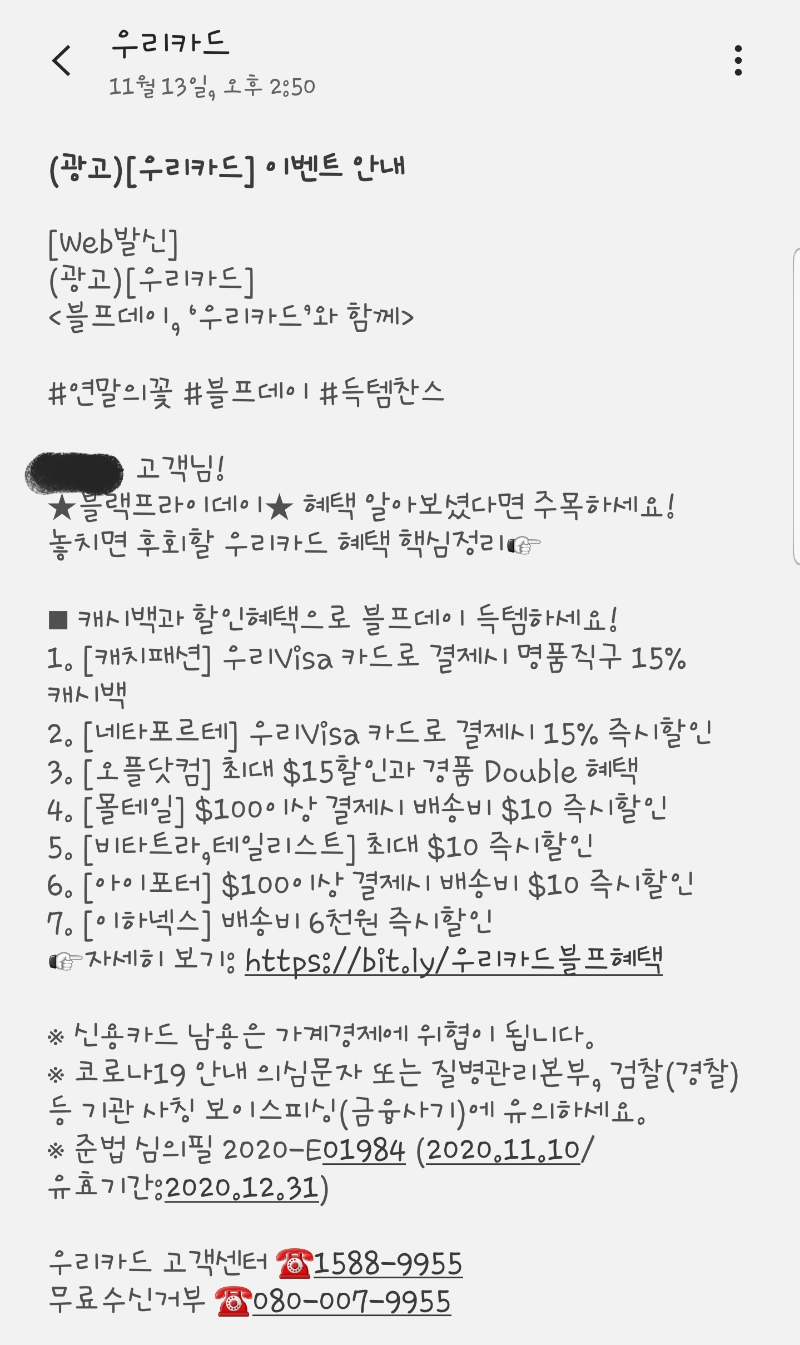 우리카드
11월 13일, 오후 2:50
(광고)[우리카드] 이벤트 안내
[Web발신]
(광고)[우리카드]
<블프데이, ‘우리카드’와 함께>
#연말의꽃 #블프데이 #득템찬스
고객님!
★블랙프라이데이★ 혜택 알아보셨다면 주목하세요!
놓치면 후회할 우리카드 혜택 핵심정리👉
■ 캐시백과 할인혜택으로 블프데이 득템하세요!
1. [캐치패션] 우리Visa 카드로 결제시 명품직구 15%
캐시백
2. [네타포르테] 우리Visa 카드로 결제시 15% 즉시할인
3. [오플닷컴] 최대 $15할인과 경품 Double 혜택
4. [몰테일] $100이상 결제시 배송비 $10 즉시할인
5. [비타트라,테일리스트] 최대 $10 즉시할인
6. [아이포터] $100이상 결제시 배송비 $10 즉시할인
7. [이하넥스] 배송비 6천원 즉시할인
👉자세히 보기: https://bit.ly/우리카드블프혜택
※ 신용카드 남용은 가계경제에 위협이 됩니다.
※ 코로나19 안내 의심문자 또는 질병관리본부, 검찰(경찰)
등 기관 사칭 보이스피싱(금융사기)에 유의하세요.
※ 준법 심의필 2020-E01984 (2020.11.10/
유효기간:2020.12.31)
우리카드 고객센터 ☎1588-9955
무료수신거부 ☎080-007-9955